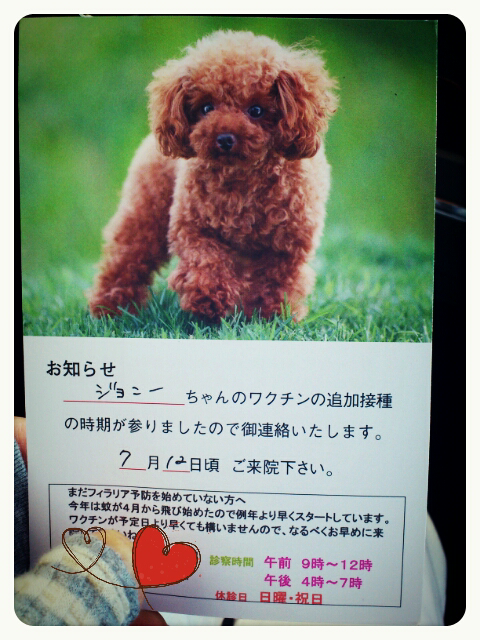 お知らせ
ジョニーちゃんのワクチンの追加接種
の時期が参りましたので御連絡いたします。
7月12日頃 ご来院下さい。
まだフィラリア予防を始めていない方へ
今年は蚊が4月から飛び始めたので例年より早くスタートしています。
ワクチンが予定日より早くても構いませんので、なるべくお早めに来
診察時間 午前 9時〜12時
午後 4時〜7時
休診日 日曜・祝日